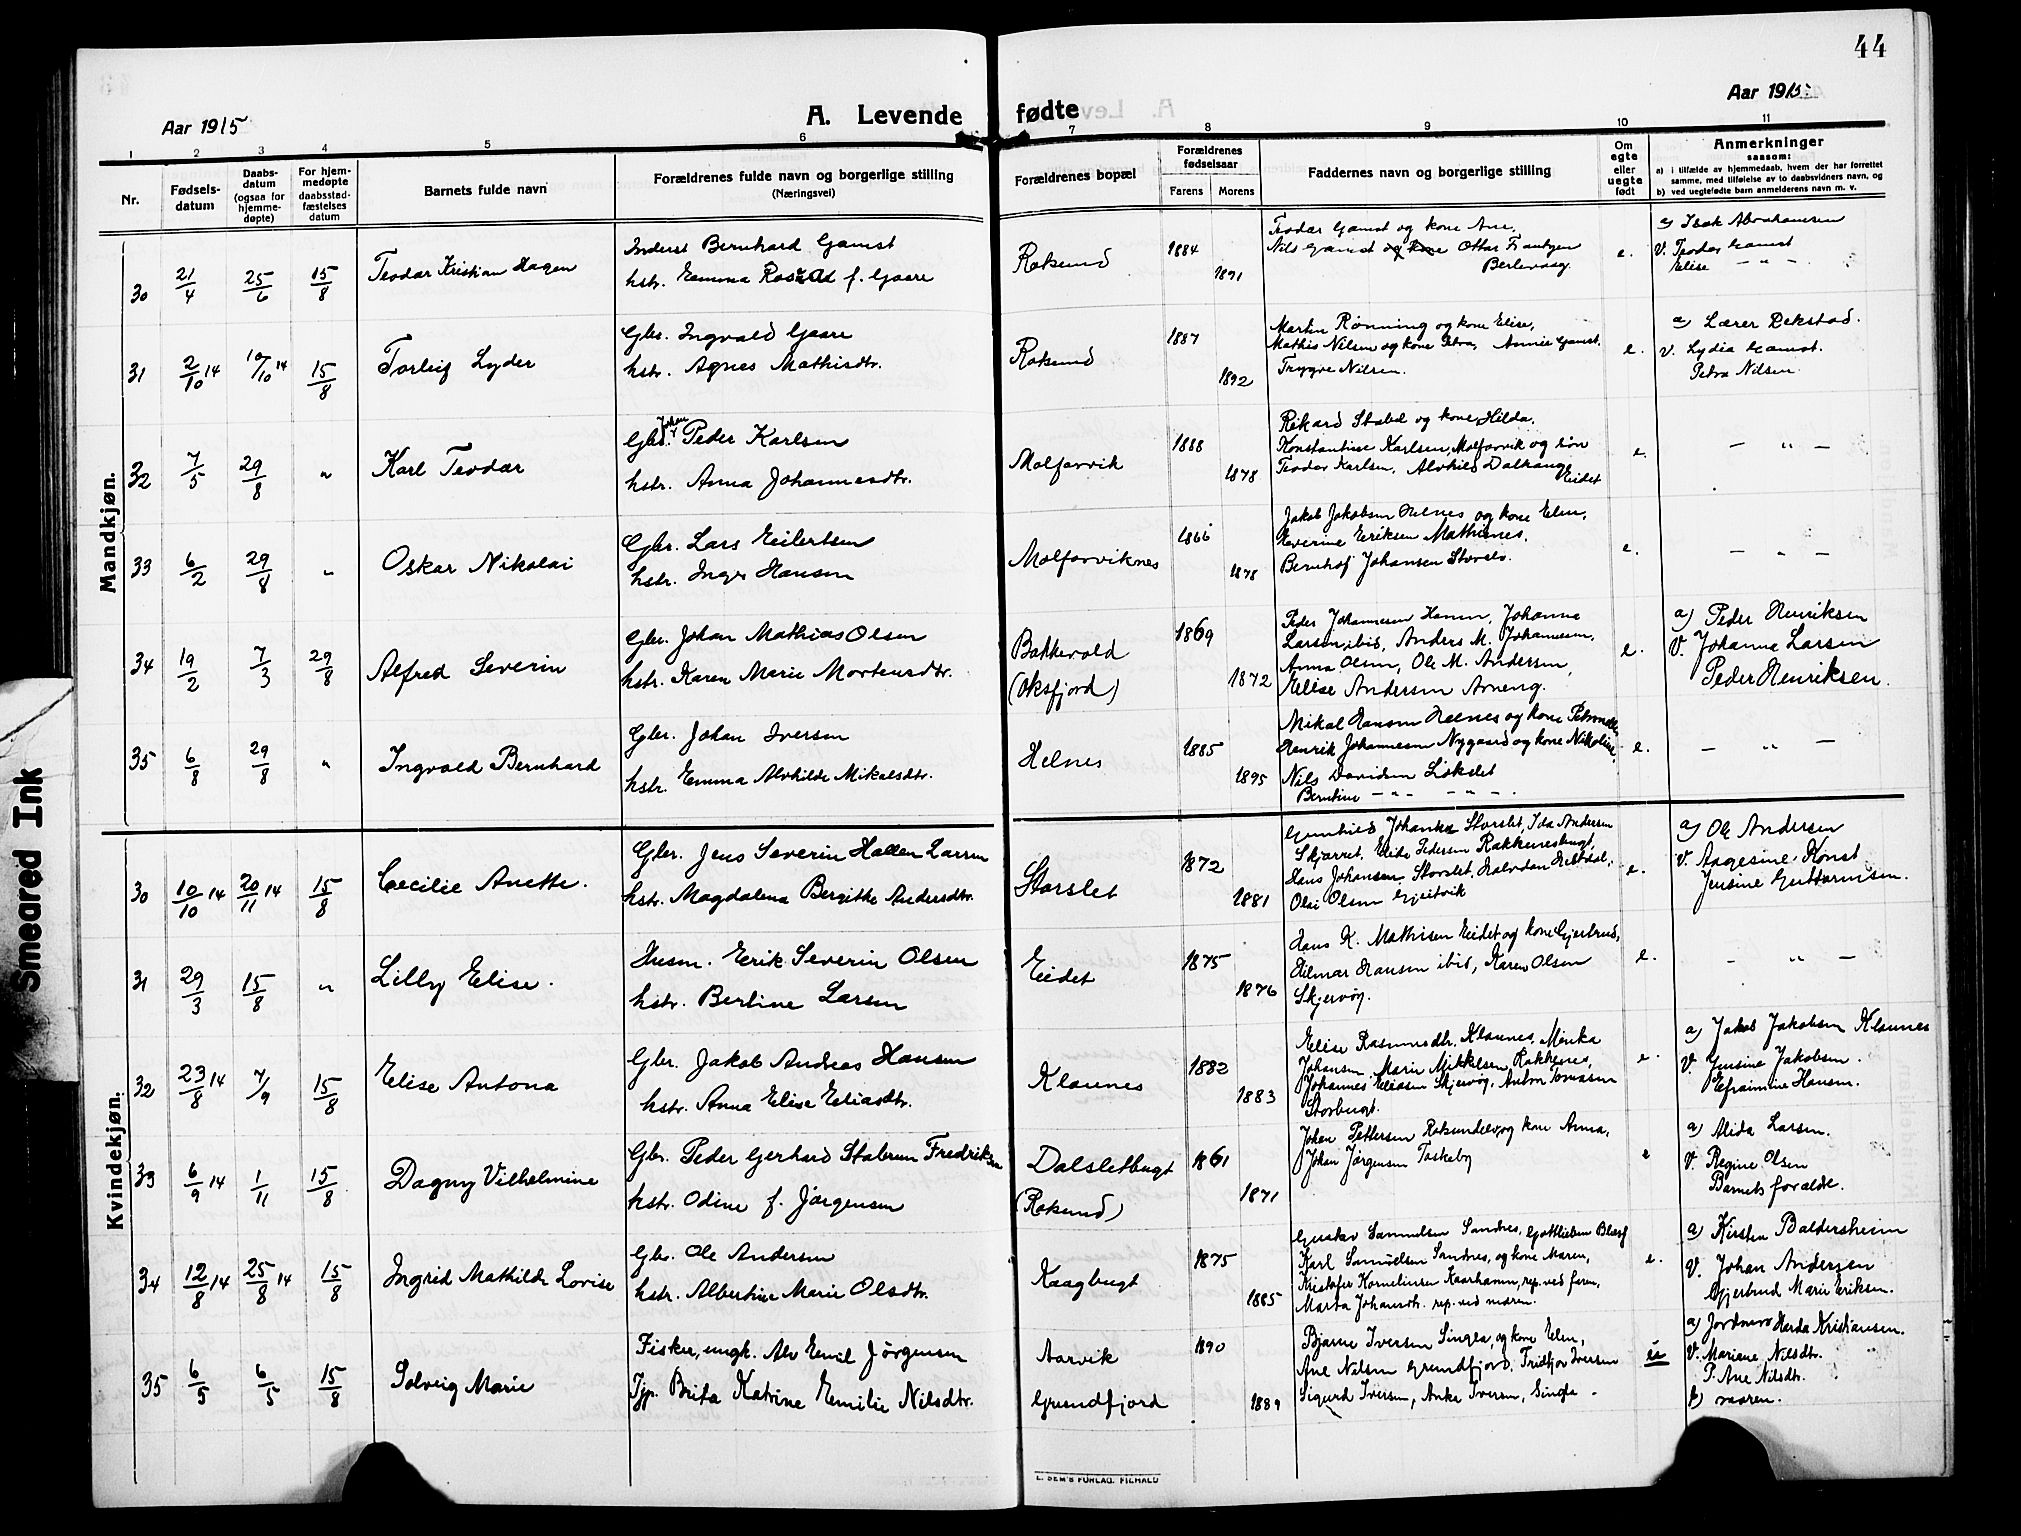 44
Aar 1915
A. Levende fødte
Aar 1915
1 2 3 4 5 6 7 8 9 10 11
Nr.
Fødsels-
datum
Daabs-
datum
(ogsaa for
hjemme-
døpte)
For hjem-
medøpte
daabsstad-
fæstelses
datum
Barnets fulde navn
Forældrenes fulde navn og borgerlige stilling
(Næringsvei)
Forældrenes bopæl
Forældrenes
fødselsaar
Farens Morens
Faddernes navn og borgerlige stilling
Om
egte
eller
uegte
født
Anmerkninger
saasom:
a) i tilfælde av hjemmedaab, hvem der har forrettet
samme, med tilføielse av to daabsvidners navn, og
b) ved uegtefødte barn anmelderens navn m. v.
Mandkjøn.
30 21/4 25/6 15/8 Teodar Kristian Hagen
Inderst Bernhard Gamst
hstr. Emma f. Gaare
Roksund
1884
1891
Teodar Gamst og kone Ane,
Nils Gamst og kone Ottar
Berlevaag.
e.
a) Isak Abrahamsen
V. Teodar Gamst
Elise — " —
31 2/10 14 10/10 14 15/8 Torleif Lyder
Gbr. Ingvald Gaare
hstr. Agnes Mathisdtr.
Roksund
1887
1892
Martin Rønning og kone Elise,
Mathis Nilsen og kone Petra, Annie Gamst.
Trygve Nilsen.
e.
a) Lærer Dekstad.
V. Lydia Gamst.
Petra Nilsen.
32 7/5 29/8 " Karl Teodar
Gbr. Johan Peder Karlsen
hstr. Anna Johannesdtr.
Molforvik
1888
1878
Rikard Stabel og kone Hilda,
Konstantinse Karlsen, Molforvik og søn
Teodor Karlsen, Alvhild Dalhaug
Eidet
e.
— " —
33 6/2 29/8 " Oskar Nikolai
Gbr. Lars Eilertsen
hstr. Inger Hansen
Molforviknes
1866
1878
Jakob Jakobsen Helnes og kone Elen,
Severine Eriksen Mathisnes,
Bernhof Johansen Storslet.
e.
— " —
34 19/2 7/3 29/8 Alfred Severin
Gbr. Johan Mathias Olsen
hstr. Karen Marie Mortensdtr.
Bakkevold
(Oksfjord)
1869
1872
Peder Johannesen Hamn, Johanna
Larsen, ibid, Anders M. Johannesen,
Anna Olsen, Ole M. Andersen,
Elise Andersen Arneng.
e.
a) Peder Henriksen
V. Johanna Larsen
Peder Henriksen.
35 6/8 29/8 " Ingvald Bernhard
Gbr. Johan Iversen
hstr. Emma Alvhilde Mikalsdtr.
Helnes
1885
1895
Mikal Hansen Helnes og kone Petronelle
Henrik Johannesen Nygaard og kone Nikoline,
Nils Davidsen Lökslet
Berntine — " — — " —.
e.
— " —
Kvindekjøn.
30 10/10 14 20/11 14 15/8 Cecilie Anette.
Gbr. Jens Severin Hallen Larsen
hstr. Magdalena Bergitte Andersdtr.
Storslet
1872
1881
Gunhild Johanka Storslet, Ida Andersen
Skjarret, Elide Pedersen Rakkenesbugt,
Hans Johansen Storslet, Halvdan
Olai Olsen Geitvik
e.
a) Ole Andersen
V. Aagesine Konst
Jensine Guttormsen.
31 29/3 15/8 " Lilly Elise.
Husm. Erik Severin Olsen
hstr. Berline Larsen
Eidet
1875
1876
Hans K. Mathisen Eidet og kone Gjertrud,
Hilmar Hansen ibid, Karen Olsen
Skjervøy.
e.
— " —
32 23/8 14 7/9 15/8 Elise Antona
Gbr. Jakob Andreas Hansen
hstr. Anna Elise Eliasdtr.
Klaunes
1882
1883
Elise Rasmusdtr. Klaunes, Minka
Johansen, Marie Mikkelsen, Rakkenes,
Johannes Eliasen Skjervøy, Anton Tomasen
Storbugt.
e.
a) Jakob Jakobsen Klaunes
V. Jensine Jakobsen.
Efraimine Hansen.
33 6/9 14 1/11 15/8 Dagny Vilhelmine
Gbr. Peder Gerhard Stabrun Fredriksen
hstr. Odine f. Jørgensen
Dalsletbugt
(Roksund)
1861
1871
Johan Pettersen Roksundelv og kone Anna,
Johan Jørgensen Taskeby
e
a) Alida Larsen.
V. Regine Olsen
Barnets forælde.
34 12/8 14 25/8 14 15/8 Ingrid Mathilde Lovise
Gbr. Ole Andersen
hstr. Albertine Marie Olsdtr.
Kaagbugt
1875
1885
Gustav Samuelsen Sandnes, Gottlieben
Karl Samuelsen Sandnes, og kone Maren,
Kristofer Korneliusen Kaarhamn, rep. ved faren,
Marta Johansdtr. rep. ved moren.
e.
a) Kirsten Baldersheim
V. Johan Andersen
Gjertrud Marie Eriksen.
35 6/5 6/5 15/8 Solveig Marie
Fisker, ungk. Alv Emil Jørgensen
Tjp. Brita Katrine Emilie Nilsdtr.
Aarvik
Grundfjord
1890
1889
Bjarne Iversen Singla, og kone Elen,
Ane Nilsen Grundfjord, Fridtjov Iversen
Sigurd Iversen, Anka Iversen, Singla -
u
a) Jordmor Herda Kristiansen.
V. Mariane Nilsdtr.
P. Ane Nilsdtr.
b) moren.
Smeared Ink
E. SEM'S FORLAG. FR.HALD